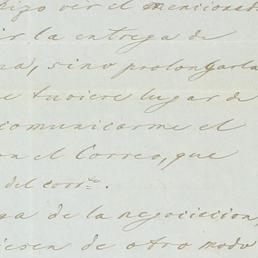 hizo ver el mencionado
ir la entrega de
na, sino prolongarla
e tuviere lugar de
comunicarme el
on el Correo, que
del corrte.
sa de la negociacion,
iesen de otro modo